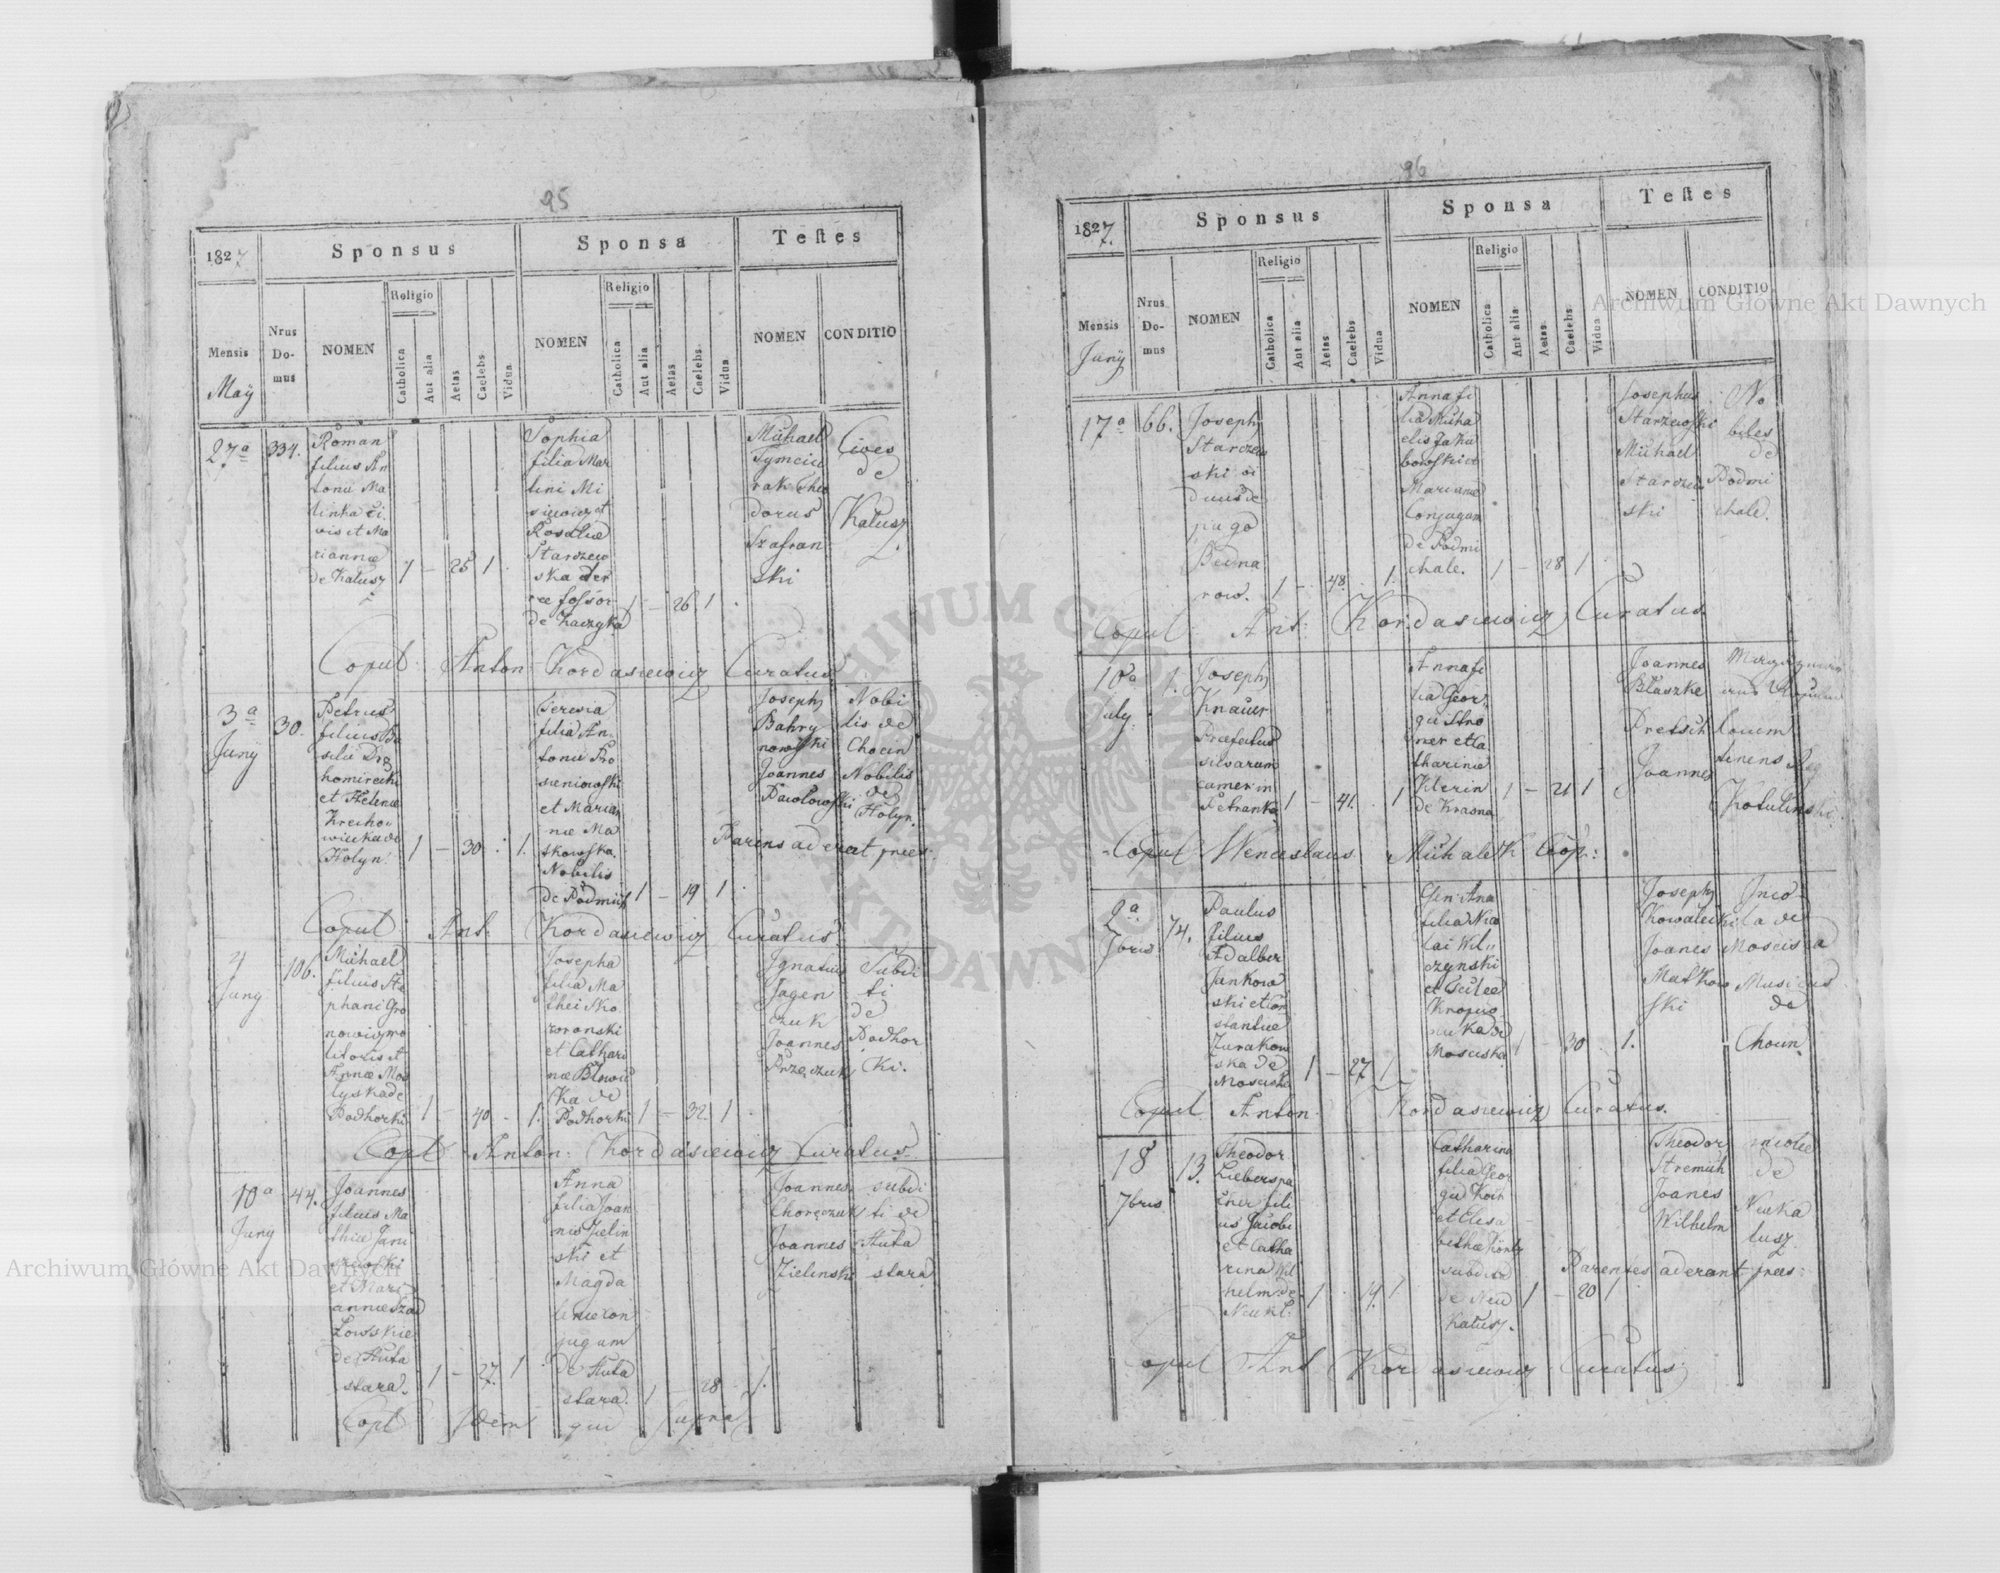 95
1827
Sponsus
Sponsa
Testes
Mensis
May
Nrus
Do-
mus
NOMEN
Religio
Catholica
Aut alia
Aetas
Caelebs
Vidua
NOMEN
Religio
Catholica
Aut alia
Aetas
Caelebs
Vidua
NOMEN
CONDITIO
27a
334.
Roman
filius An
tonii Ma
linka Ci
vis et Ma
riannæ
de Kałusz
1 – 25 1
Sophia
filia Mar
tini Mi
siewicz et
Rosaliæ
Starzew
ska
de
1 – 26 1
Michael
dorus
Szafran
ski
Cives
de
Kałusz
Copul: Anton: Kordasiewicz Curatus
3a
Juny
30.
Petrus
filius Ba
silii Dro
homirecki
et Helenæ
Krecho
wiecka de
Hołyn.
1 – 30 . 1.
Teresia
filia An
tonii Ro
sieniowski
et Marian
næ Ma
skowska.
Nobilis
de Podmich
1 – 19 1
Joseph
Bahry
nowski
Joannes
Pawłowski
Nobi
lis de
Chocin
Nobilis
de
Hołyn.
Parens aderat præs.
Copul: Ant: Kordasiewicz Curatus
4
Juny
106.
Michael
filius Ste
phani Gro
nowicz mo
litoris et
Annæ Mos
lyska de
Podhorki
1 – 40 . 1.
Josepha
filia Ma
thei Sko
roronski
et Cathari
næ Błowic
ka de
Podhorki
1 – 32 1
Ignatius
Jagen
czuk
Joannes
Przęczuk
Subdi
ti
de
Podhor
ki.
Copt Anton: Kordasiewicz Curatus
10a
Juny
44.
Joannes
filius Ma
thiæ Jani
szewski
et Mari
annæ Szad
łowskie
de Huta
stara.
1 – 27. 1
Anna
filia Joan
nis Zielin
ski et
Magda
lenæ con
jugum
de Huta
stara.
1 – 28 . 1.
Joannes
Choręczuk
Joannes
Zielinski
subdi
ti de
Huta
stara
Copt Idem qui supra
96
1827.
Sponsus
Sponsa
Testes
Mensis
Juny
Nrus
Do-
mus
NOMEN
Religio
Catholica
Aut alia
Aetas
Caelebs
Vidua
NOMEN
Religio
Catholica
Aut alia
Aetas
Caelebs
Vidua
NOMEN
CONDITIO
17a
66.
Joseph
Starzew
ski vi
duus de
pago
Bedna
row.
1 – 48. 1.
Anna fi
lia Micha
elis Jaku
bowski et
Marianæ
Conjugum
de Podmi
chale.
1 – 28 1
Josephus
Starzewski
Michael
Starzew
ski
No
biles
de
Podmi
chale.
Copul: Ant: Kordasiewicz Curatus
10a
July
1.
Joseph
Knauer
Præfectus
silvarum
camer: in
Petranka
1 – 41. 1
Anna fi
lia Geor
gii
ner et Ca
tharinæ
Klerin
de Krasna
1 – 21 1
Joannes
Błaszke
Pretsch
Joannes
Copul Wenceslaus Michaleth Coop:
2a
7bris
74.
Paulus
filius
Adalber
Jankow
ski et Con
stantiæ
Zurakow
ska de
Mosciska
1 – 27 1
filia Nico
lai Wil
czynski
et
de
Mosciska
1 – 30 . 1.
Joseph
Kowalecki
Joanes
Matkow
ski
Inco
la de
Mosciska
Musicus
de
Chocin.
Copul Anton: Kordasiewicz Curatus.
18
7bris
13.
Theodor
Lieberspa
cher fili
us Jacobi
et Catha
rina Wil
helm de
Neukł.
1 . 19. 1
Catharina
filia Geor
gii Koch
et Elisa
bethæ
subditæ
de Neu
kałusz.
1 – 20 1
Theodor
Stremich
Joanes
Wilhelm
de
Neuka
łusz.
Parentes aderant præs:
Copul Ant Kordasiewicz Curatus
Archiwum Główne Akt Dawnych
Archiwum Główne Akt Dawnych
ARCHIWUM GŁÓWNE AKT DAWNYCH